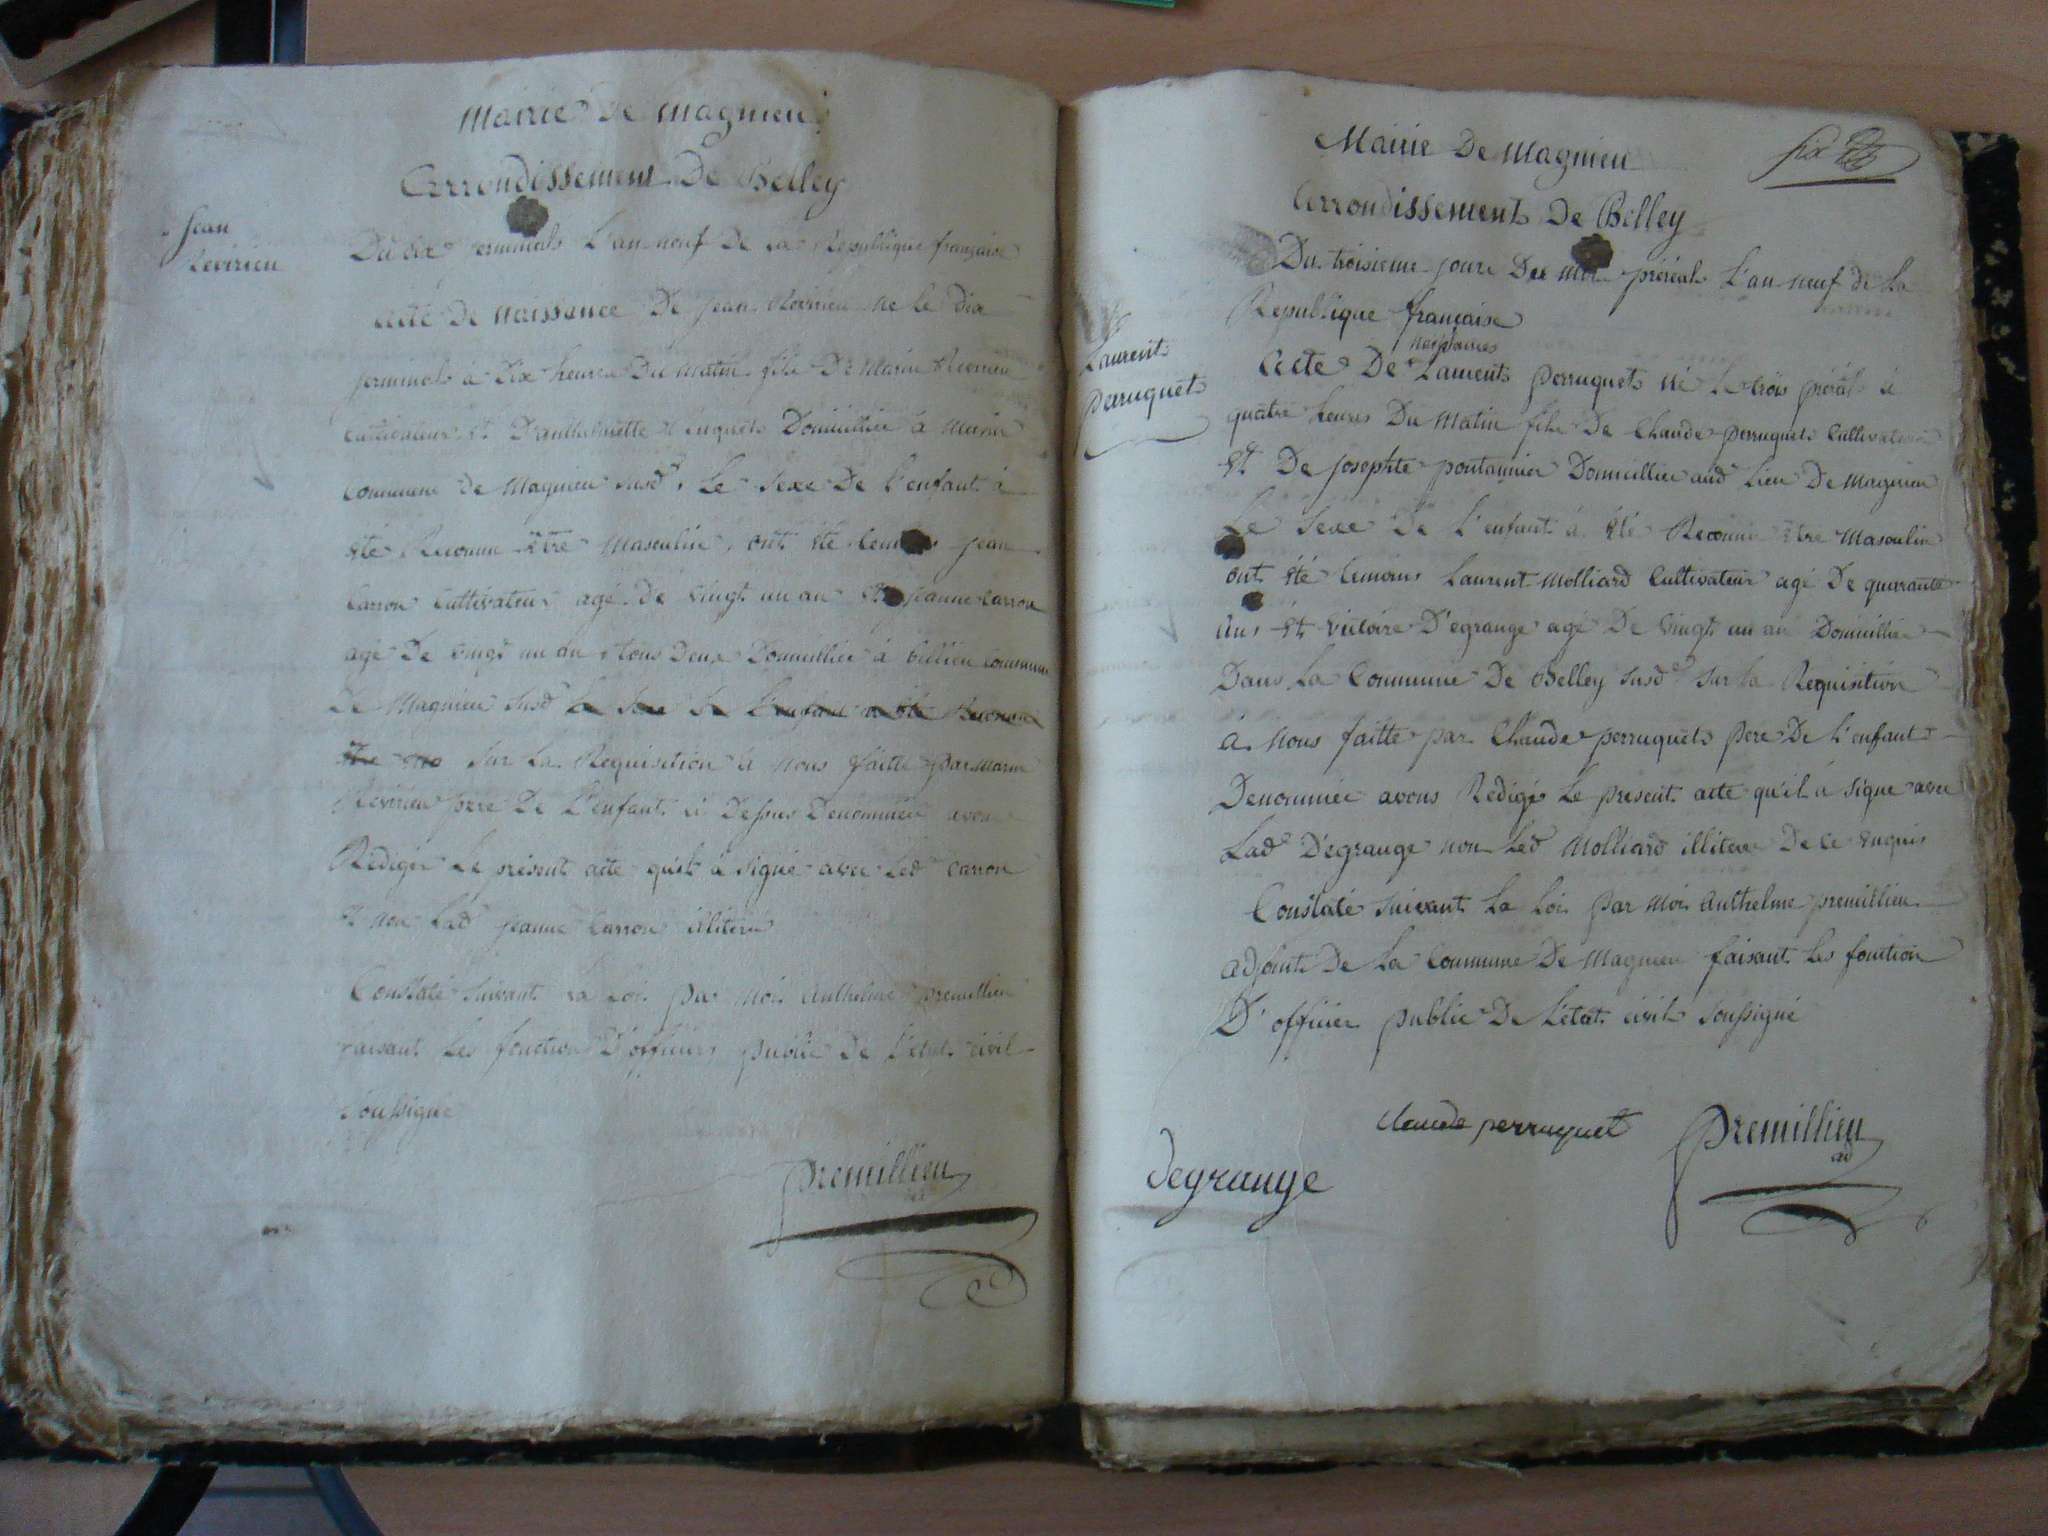 Mairie De Magnieu
Arrondissement De Belley
Jean
Revirieu
Du dix germinal L'an neuf De La Republique française
Acte De Naissance De jean Revirieu ne le Dix
germinal a Dix heures Du matin fils De Marin Revirieu
cultivateur Et D'anthelmette Domicillié à
commune de Magnieu susd. Le Sexe De L'enfant à
été Reconnu Être Masculin, ont été temoins jean
Carron Cultivateur agé de vingt un an Et jeanne Carron
agé De vingt un an tous Deux Domicillié à billieu commune
De Magnieu susd Le Sexe De L'enfant a été Reconnu
Être Sur La Requisition à nous faitte par Marin
Revirieu père De L'enfant ci Dessus Denommeé avons
Rediger Le présent acte qu'il à signé avec Led Carron
Et non Lad jeanne Carron illiteré
Constaté suivant La Loi par moi Anthelme premillieu
faisant Les fonction D'officier public De L'etat civil
soussigné
premillieu
Mairie De Magnieu
six
Arrondissement De Belley
Du troisieme jour Du Mois préréal L'an neuf de La
Republique française
Laurent
perruquet
naissances
Acte De Laurent perruquet né Le trois préréal à
quatre heures Du Matin fils De Claude perruquet Cultivateur
Et De josephte pontannier Domicillié aud Lieu De Magnieu
Le Sexe De L'enfant à été Reconnu être Masculin
ont été temoins Laurent Molliard Cultivateur agé De quarante
Ans Et victoire D'egrange agé De vingt un an Domicillié
Dans La Commune De Belley susd Sur La Requisition
à nous faitte par Claude perruquet père De L'enfant
Denommée avons Rédigé Le present acte qu'il à signé avec
Lad D'egrange non Led Molliard illiteré De ce enquis
Constaté suivant La Loi par Moi Anthelme premillieu
adjoint De La Commune De Magnieu faisant Les fonction
D'officier public De L'etat civil soussigné
claude perruquet
premillieu
ad
degrange